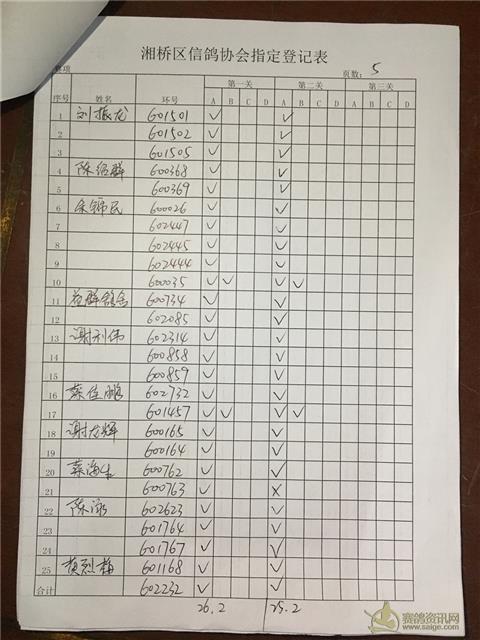 湘桥区信鸽协会指定登记表
页数: 5
第一关 第二关 第三关
序号 姓名 环号 A B C D A B C D A B C D
1 刘振龙 601501 ✓ ✓
2 601502 ✓ ✓
3 601505 ✓ ✓
4 陈绍群 600368 ✓ ✓
5 600369 ✓ ✓
6 余锦民 600026 ✓ ✓
7 602447 ✓ ✓
8 602445 ✓ ✓
9 602444 ✓ ✓
10 600035 ✓ ✓ ✓ ✓
11 益群鸽舍 600734 ✓ ✓
12 602085 ✓ ✓
13 谢利伟 602314 ✓ ✓
14 600858 ✓ ✓
15 600859 ✓ ✓
16 蔡佳鹏 602732 ✓ ✓
17 601457 ✓ ✓ ✓ ✓
18 谢龙辉 600165 ✓ ✓
19 600164 ✓ ✓
20 蔡海生 600762 ✓ ✓
21 600763 ✓ ✗
22 陈 602623 ✓ ✓
23 601764 ✓ ✓
24 601767 ✓ ✓
25 黄烈梅 601168 ✓ ✓
合计 602232 ✓ ✓
26.2 25.2
赛鸽资讯网
www.saige.com